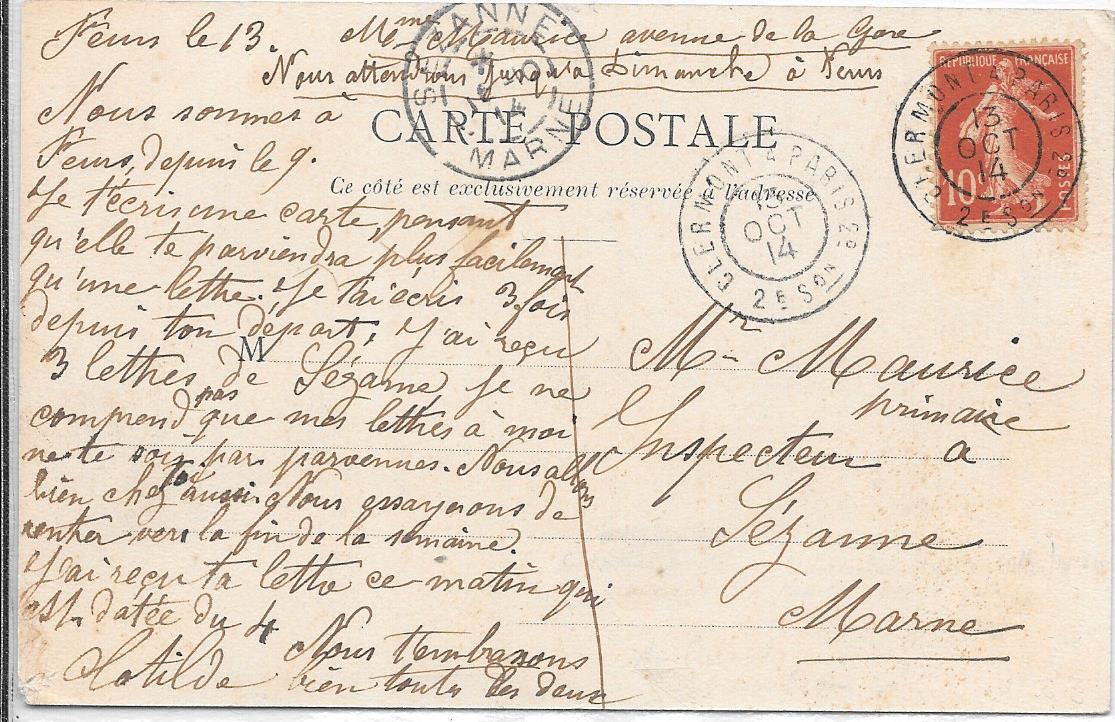 Feurs le 13. Mme Maurice avenue de la Gare
Nous attendrons jusqu'à Dimanche à Feurs
Nous sommes à
Feurs, depuis le 9.
Je t'écris une carte, pensant
qu'elle te parviendra plus facilement
qu'une lettre. Je t'ai écris 3 fois
depuis ton départ, J'ai reçu
3 lettres de Sézanne Je ne
comprend pas que mes lettres à moi
ne te soit pas parvenues. Nous allons
bien chez toi aussi. Nous essayerons de
rentrer vers la fin de la semaine.
J'ai reçu ta lettre ce matin qui
est datée du 4
Nous t'embrasons
Clotilde bien toutes les deux
CARTE POSTALE
Ce côté est exclusivement réservée à l'adresse
M
Mr Maurice
Inspecteur primaire à
Sézanne
Marne
SÉZANNE
MARNE
CLERMONT À PARIS 2°
13
OCT
14
2E SON
CLERMONT À PARIS 2°
13
OCT
14
2E SON
RÉPUBLIQUE FRANÇAISE
10
POSTES